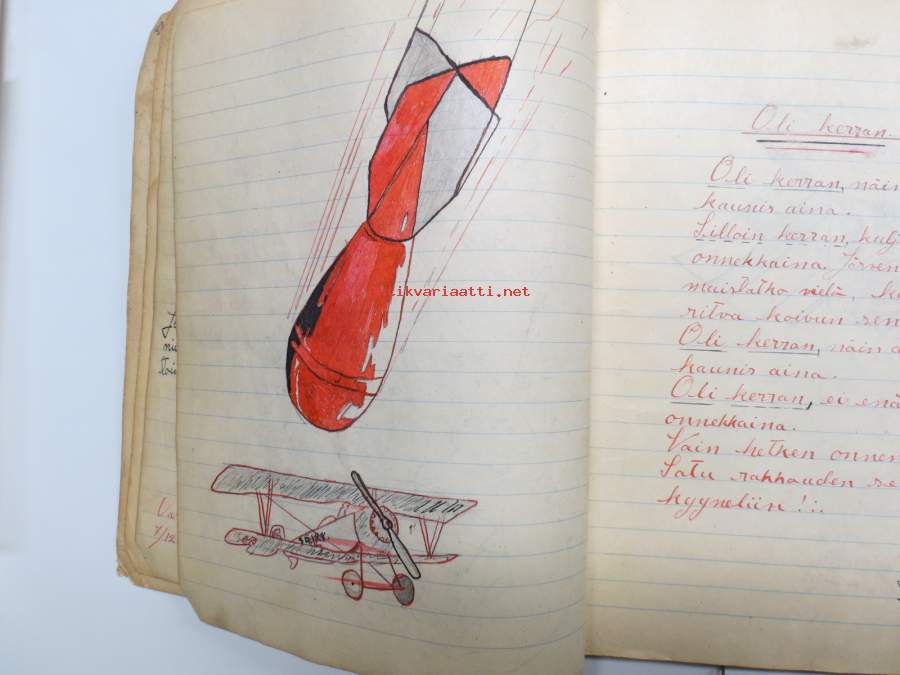 likvariaatti.net
Oli kerran.
Oli kerran, näin
kaunis aina.
Silloin kerran, kulj
onnekkaina. Järven
maislatko vielä,
ritva koivun sen
Oli kerran, näin
kaunis aina.
Oli kerran, ei enä
onnekkaina.
Vain hetken onnen
Satu rakkauden se
kyyneliin!!